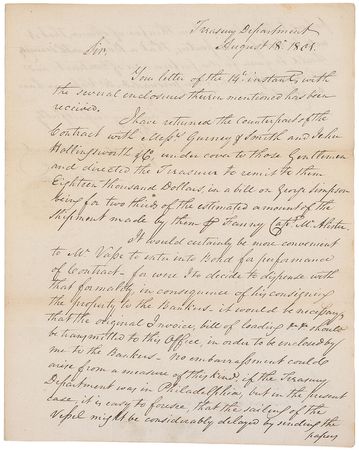 Treasury Department
August 18th 1801.
Sir,
Your letter of the 14th instant, with
the several enclosures therein mentioned has been
received.
I have returned the Counterpart of the
Contract with Messrs Gurney & Smith and John
Hollingsworth & Co, under cover to those Gentlemen
and directed the Treasurer to remit them
Eighteen thousand Dollars, in a bill on George Simpson
being for two thirds of the estimated amount of the
Shipment made by them Fanny Capt.
It would certainly be more convenient
to Mr to enter into Bond for a performance
of Contract - for were I to decide to dispense with
that formality in consequence of his consigning
the property to the Bankers - it would be necessary
that the original Invoice, bill of loading &c should
be transmitted to this Office, in order to be enclosed by
me to the Bankers - no embarrassment could
arise from a measure of this kind, if the Treasury
Department was in Philadelphia, but in the present
case, it is easy to foresee, that the sailing of the
Vessel might be considerably delayed by sending the
papers